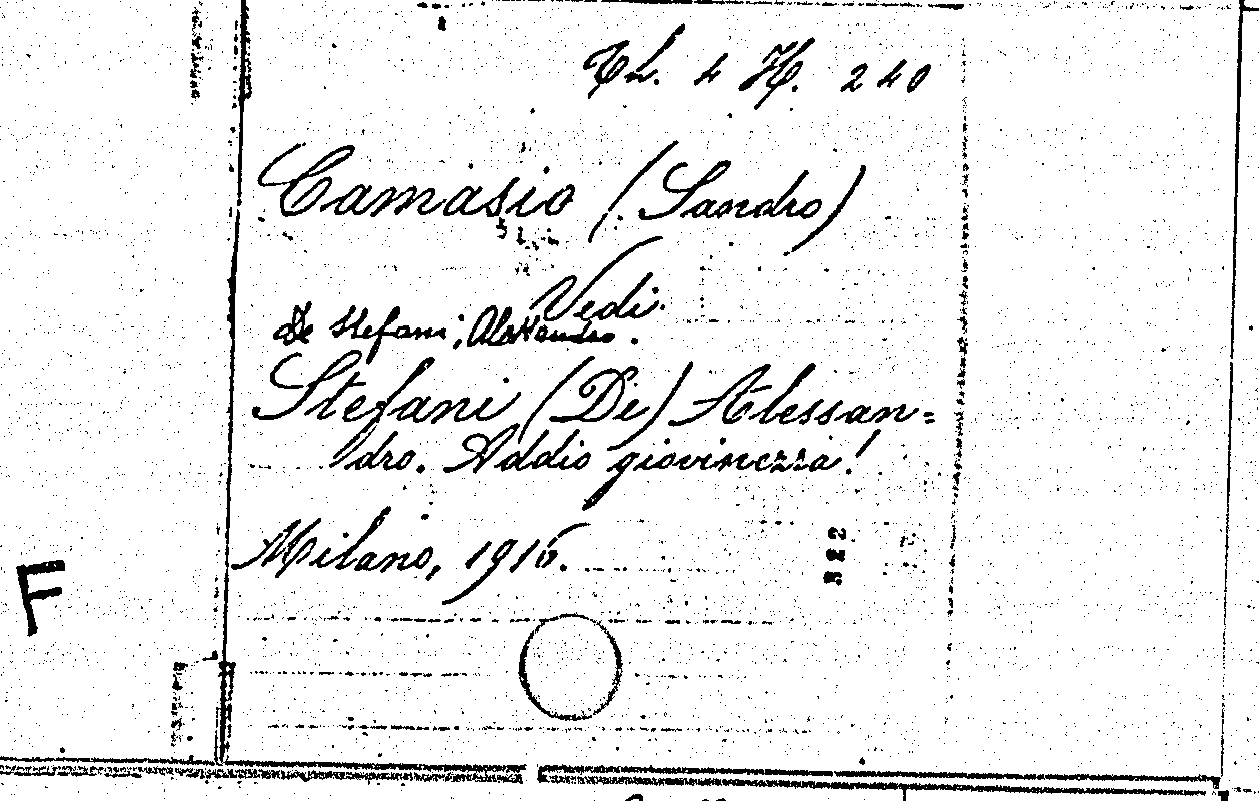 Th. 4 H. 240
Camasio (Sandro)
Vedi
de Stefani, Alessandro.
Stefani (De) Alessan=
dro. Addio giovinezza!
Milano, 1916.
322
F